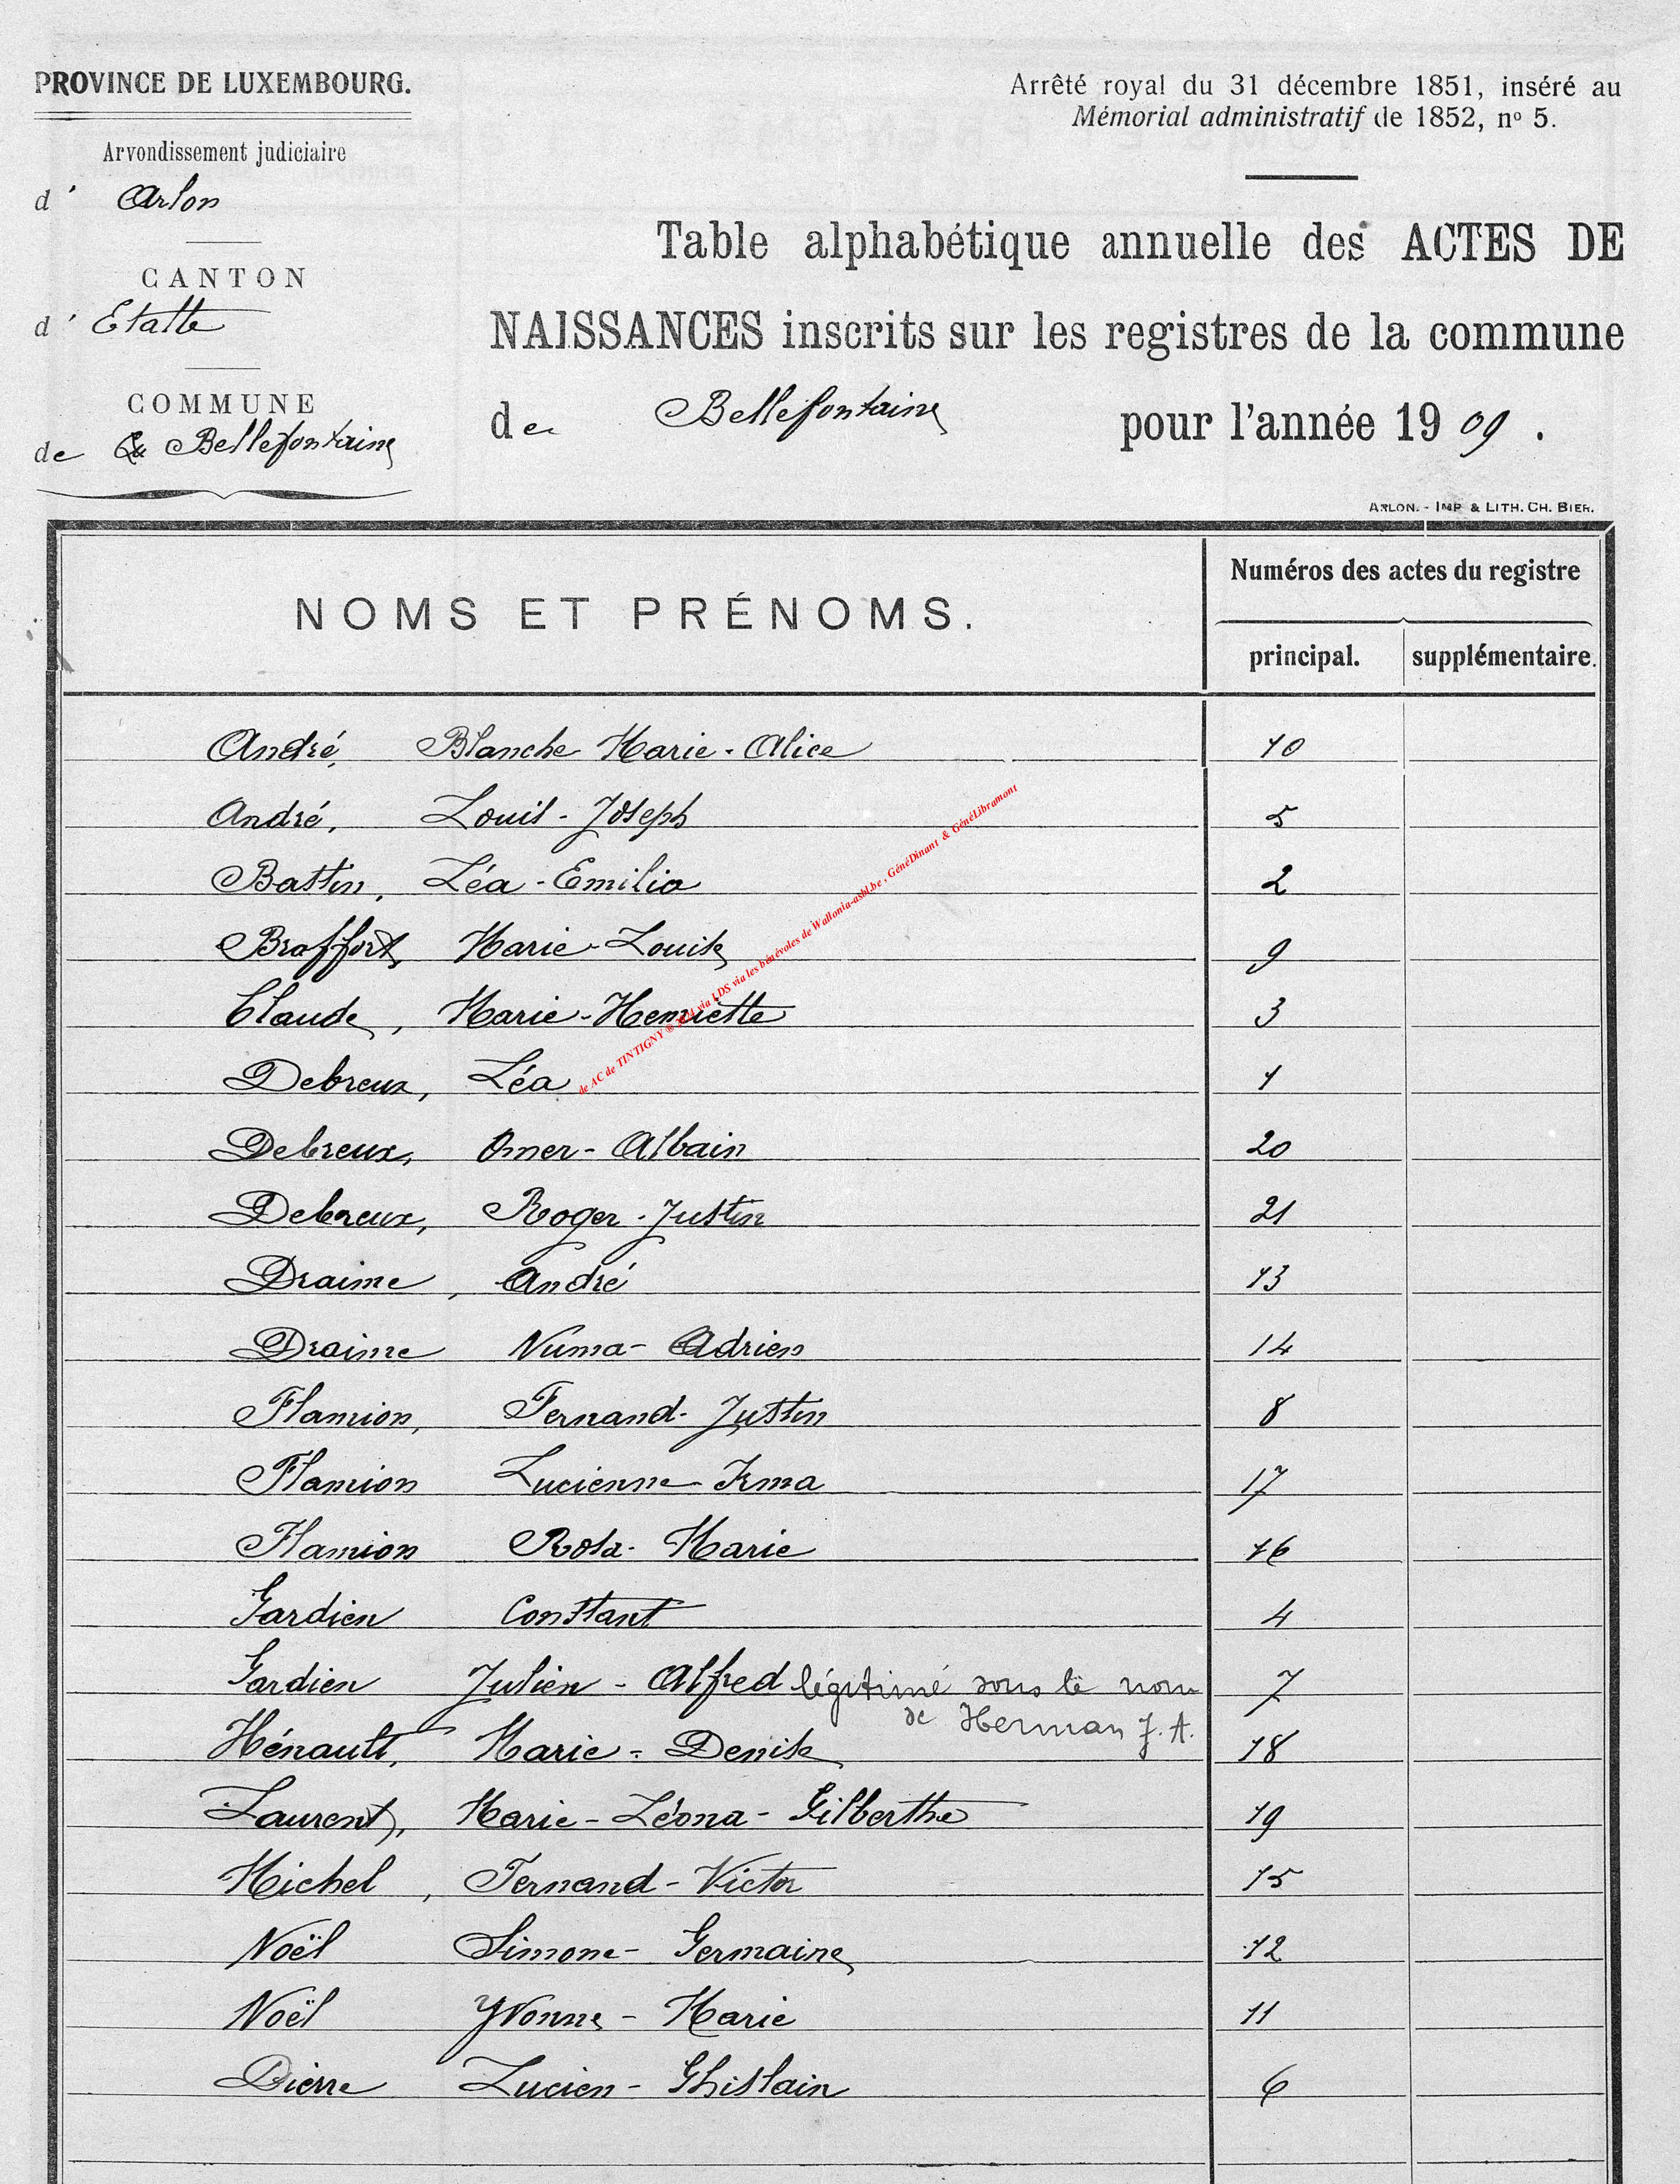 PROVINCE DE LUXEMBOURG.
Arrondissement judiciaire
d' Arlon
CANTON
d' Etalle
COMMUNE
de Bellefontaine
Arrêté royal du 31 décembre 1851, inséré au
Mémorial administratif de 1852, nº 5.
Table alphabétique annuelle des ACTES DE
NAISSANCES inscrits sur les registres de la commune
de Bellefontaine pour l'année 1909.
ARLON. - IMP & LITH. CH. BIER.
NOMS ET PRÉNOMS.
Numéros des actes du registre
principal. supplémentaire.
André, Blanche Marie-Alice 10
André, Louis-Joseph 5
Bastin, Léa-Emilia 2
Braffort, Marie-Louise 9
Claude, Marie-Henriette 3
Debreux, Léa 1
Debreux, Omer-Albain 20
Debreux, Roger-Justin 21
Draime, André 13
Draime Numa-Adrien 14
Flamion, Fernand-Justin 8
Flamion Lucienne-Irma 17
Flamion Rosa-Marie 16
Gardien Constant 4
Gardien Julien-Alfred légitimé sous le nom 7
de Herman J. A.
Hénault, Marie-Denise 18
Laurent, Marie-Léona-Gilberthe 19
Michel, Fernand-Victor 15
Noël Simone-Germaine 12
Noël Yvonne-Marie 11
Pierre Lucien-Ghislain 6
de AC de TINTIGNY ® 2024 via LDS via les bénévoles de Wallonia-asbl.be , GénéDinant & GénéLibramont